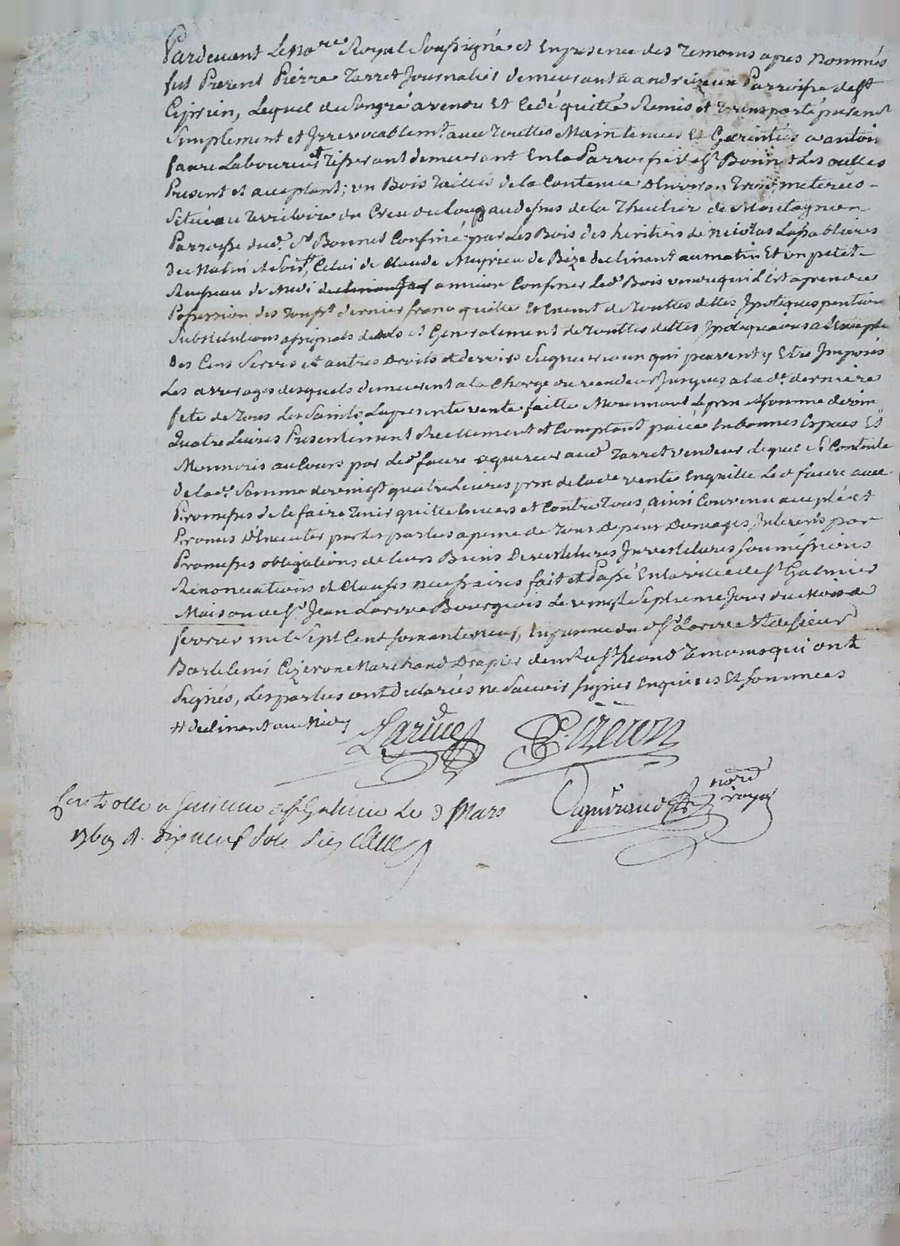 Pardevant Le no.re Royal Soussigné et En presence des Temoins apres nommés
fut Present Pierre Zarret Journalier demeurant a andrezieux Parroisse de st
Ciprien, Lequel de son gré a vendu Et Cedé quitté Remis et transporté purement
Simplement et Irrevocablemt. avec touttes Maintenues Et Garenties a antoine
faure Laboureur et tisserant demeurant En la Parroisse de st Bonnet Les oulles
Present et acceptant; un Bois Taillis de la Contenue d'Environ Trois meterées
Situé au Territoire du Creu du Loup au dessus de la Thuillere de Montagneu
Parroisse dud. st Bonnet Confiné par Les Bois des heritiers de nicolas Lassablieres
De Matin et Soir, Celui de Claude Meyrieu de Bize declinant au matin Et un petit
Ruisseau de Midi a mieux Confiner Led. Bois vendu qu'il Est a prendre
Possession des Touss.ts dernier franc quitte Et Exempt de Touttes dettes Ipotiques pention
Substitutions assignats de dots et Generalement de touttes dettes Ipotiques jusqu'a
Des Cens Servis et autres Droits et devoirs Seigneuriaux qui peuvent y Etre Imposés
Les arrerages desquels demeurent a la Charge du vendeur Jusques a lad. derniere
fete de Tous Les Saints La presente vente faitte Moyennant Le prix et somme de vin
Quatre Livres Presentement Reellement et Comptant paiée En bonnes Especes Et
Monnoie au Cours par Led. faure aquereur aud. Zarret vendeur Lequel et Contente
de lad. Somme de vingt quatre Livres prix de lade vente En quitte Led faure avec
Promesses de le faire Tenir quitte Envers et Contre Tous, ainsi Convenu accepté et
Promis D'Executer par Les parties a peine de Tous Depens Domages Interets par
Promesses obligations de leurs Biens Devestitures Investitures soumissions
Renonciations et Clauses necessaires fait et Passé En la ville de st Galmier
Maison de sr Jean Larive Bourgeois Le vingt Septieme Jour du Mois de
fevrier mil Sept Cent soixante neuf, En presence du d. sr Larive Et de Sieur
Bartelemi Cizeron Marchand Drapier demt. a st heand Temoins qui ont
Signés, Les parties ont declarés ne Savoir signer Enquises Et Sommees
# declinant au Midy
Larive Cizeron
nore royal
Controllé a st Galmier Le 3 Mars
1769 R. dix neuf sols six